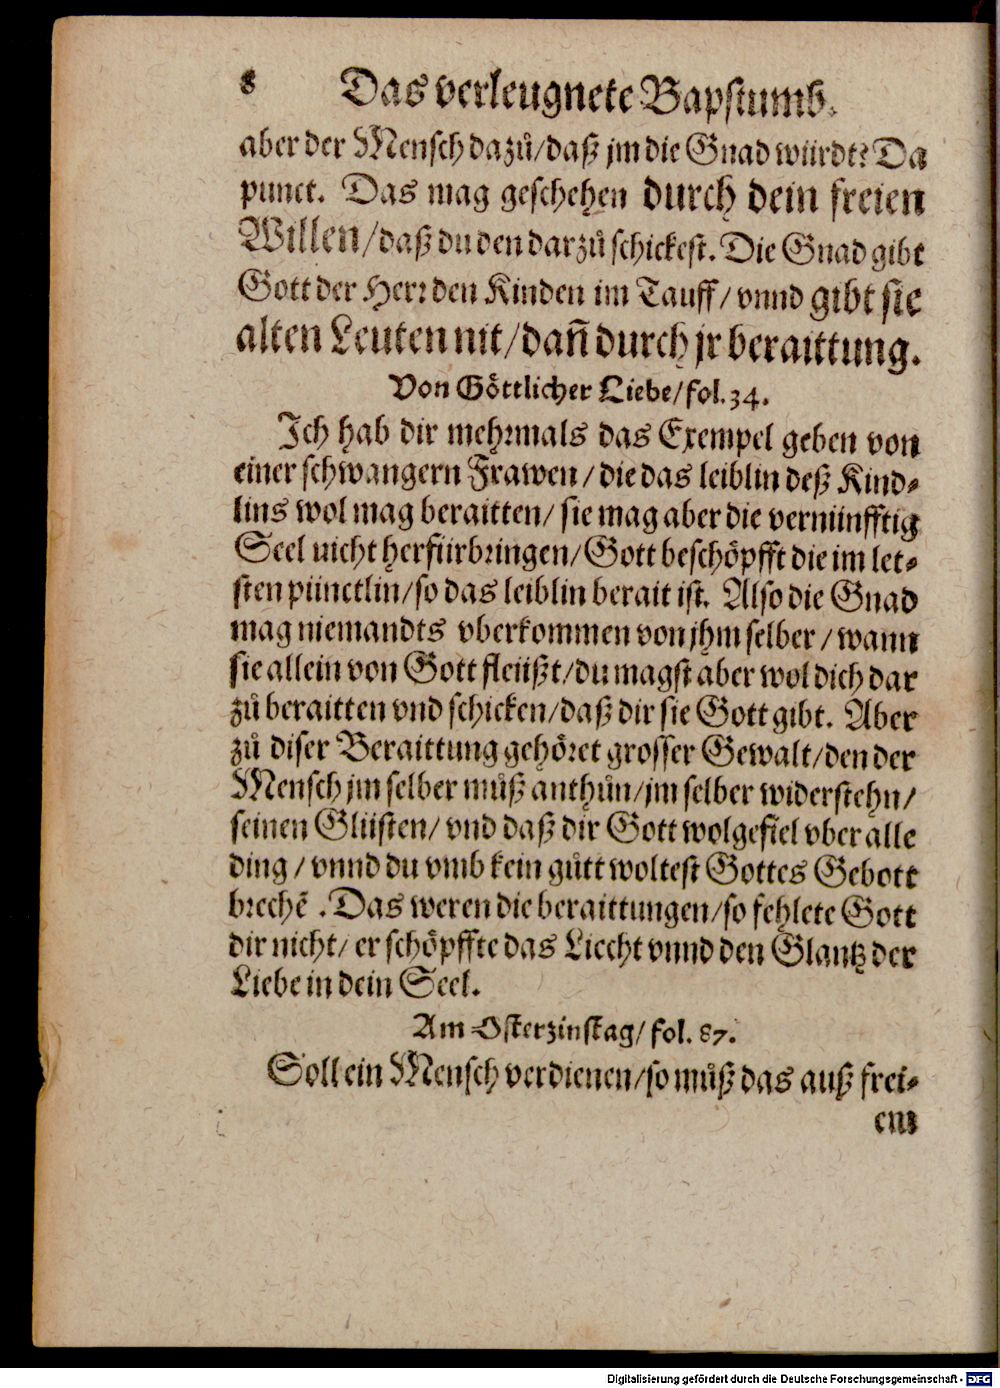 8 Das verleugnete Bapstumb.
aber der Mensch dazů/daß jm die Gnad würdt? Da
punct. Das mag geschehen durch dein freien
Willen/daß du den darzů schickest. Die Gnad gibt
Gott der Herr den Kinden im Tauff/vnnd gibt sie
alten Leuten nit/dañ durch jr beraittung.
Von Göttlicher Liebe/fol. 34.
Ich hab dir mehrmals das Exempel geben von
einer schwangern Frawen/die das leiblin deß Kind-
lins wol mag beraitten/sie mag aber die vernünfftig
Seel nicht herfürbringen/Gott beschöpfft die im let-
sten pünctlin/so das leiblin berait ist. Also die Gnad
mag niemandts vberkommen von jhm selber/wann
sie allein von Gott fleüßt/du magst aber wol dich dar
zů beraitten vnd schicken/daß dir sie Gott gibt. Aber
zů diser Beraittung gehöret grosser Gewalt/den der
Mensch jm selber můß anthůn/jm selber widerstehn/
seinen Glüsten/vnd daß dir Gott wolgefiel vber alle
ding/vnnd du vmb kein gůtt woltest Gottes Gebott
brechē. Das weren die beraittungen/so fehlete Gott
dir nicht/er schöpffte das Liecht vnnd den Glantz der
Liebe in dein Seel.
Am Osterzinstag/fol. 87.
Soll ein Mensch verdienen/so můß das auß frei-
em
Digitalisierung gefördert durch die Deutsche Forschungsgemeinschaft - DFG